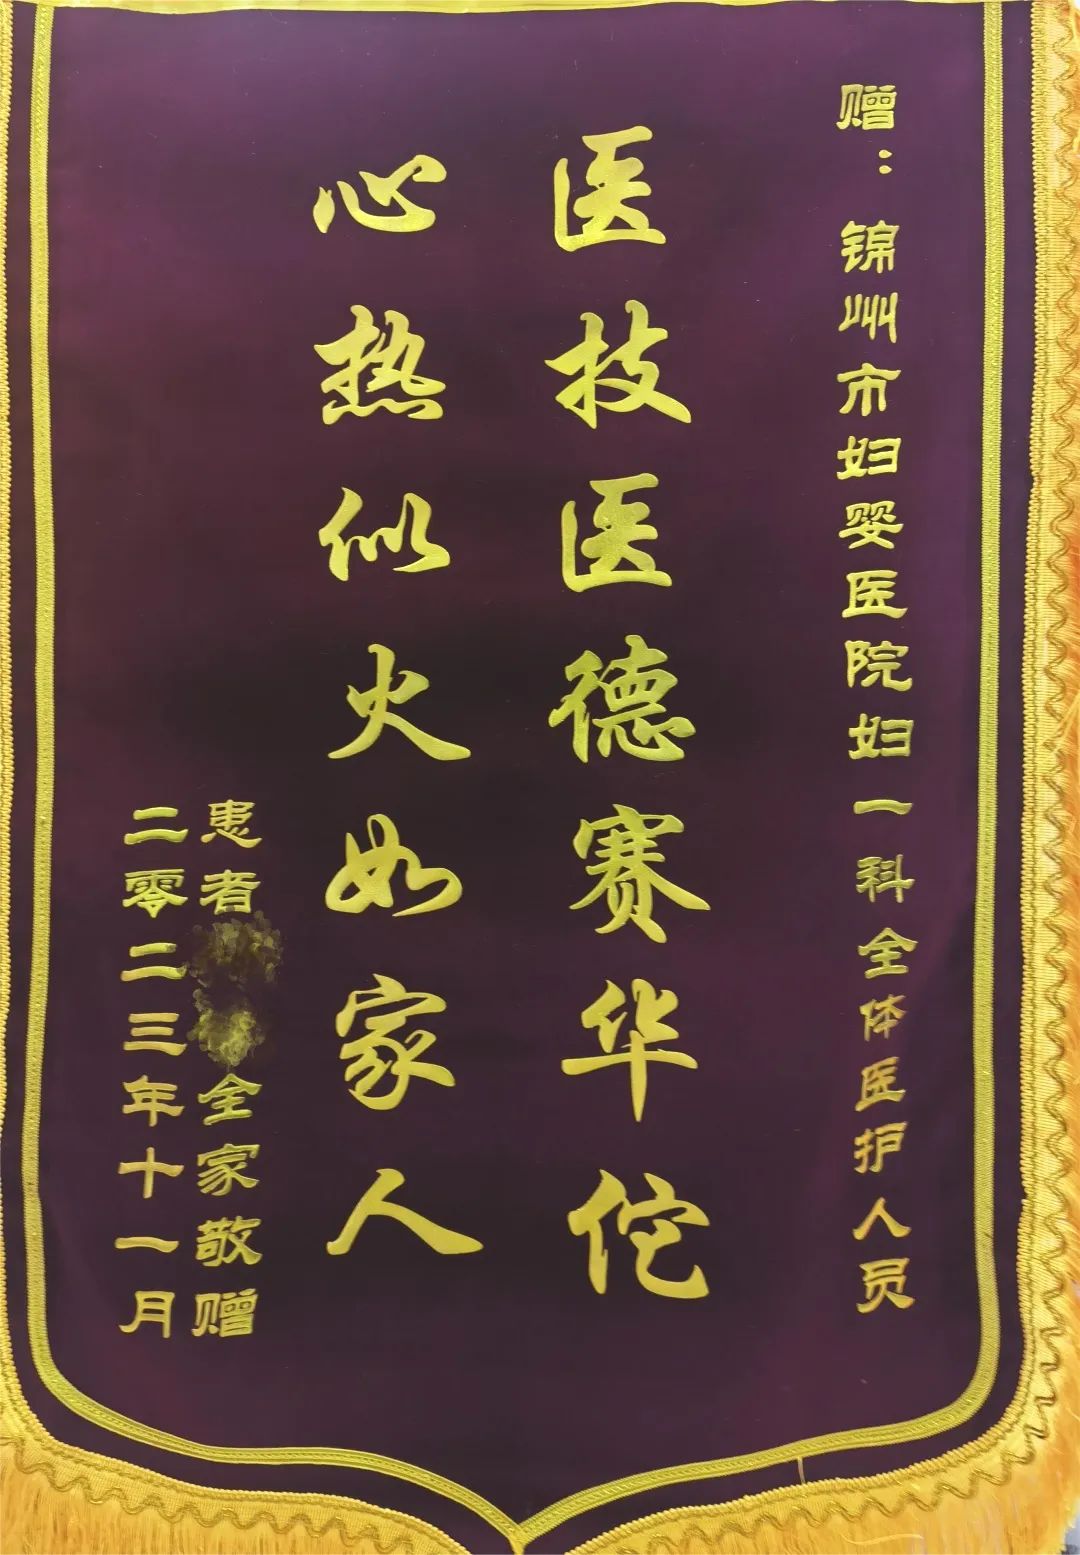 赠：锦州市妇婴医院妇一科全体医护人员
医技医德赛华佗
心热似火如家人
患者全家敬赠
二零二三年十一月